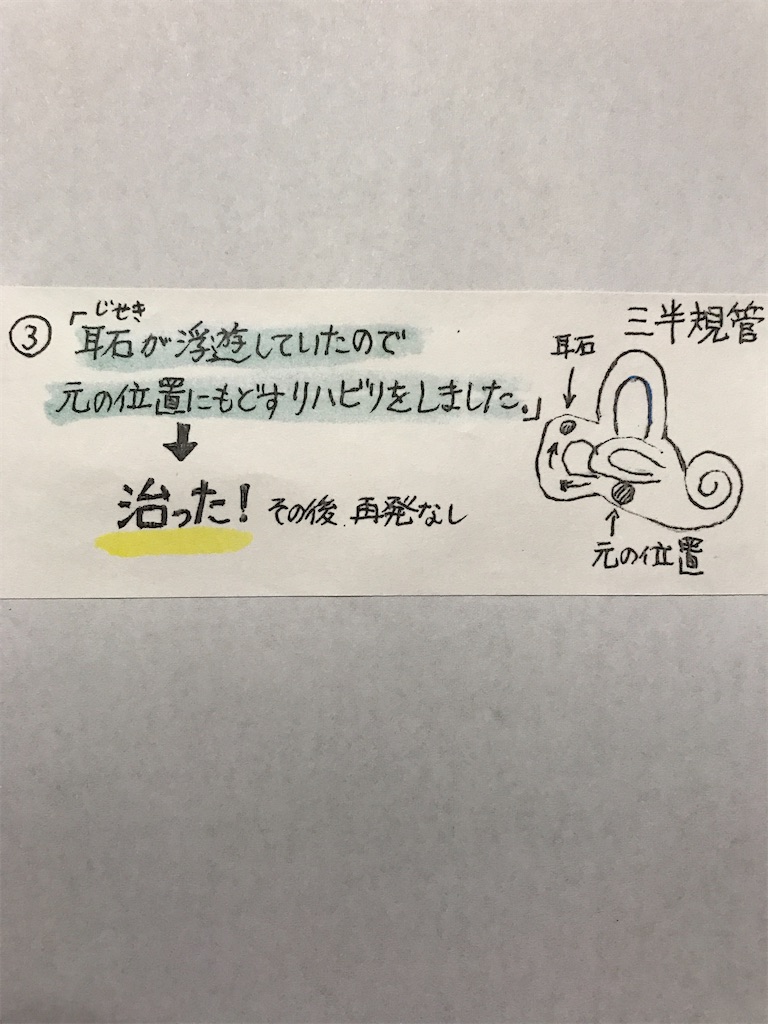 ③
じせき
「耳石が浮遊していたので
元の位置にもどすリハビリをしました。」
治った！その後 再発なし
三半規管
耳石
元の位置